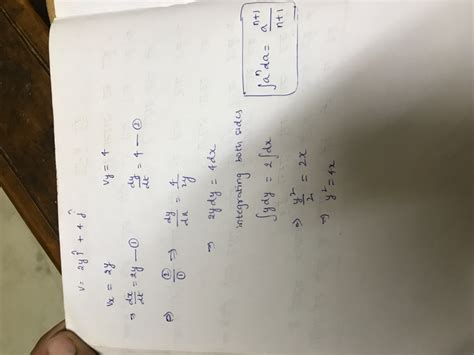 v = 2yî + 4ĵ
vx = 2y        vy = 4
⇒ dx/dt = 2y — ①        dy/dt = 4 — ②
②/① ⇒ dy/dx = 4/2y
⇒ 2ydy = 4dx
integrating both sides
∫ydy = 2∫dx
⇒ y²/2 = 2x
⇒ y² = 4x
∫aⁿda = aⁿ⁺¹/n+1